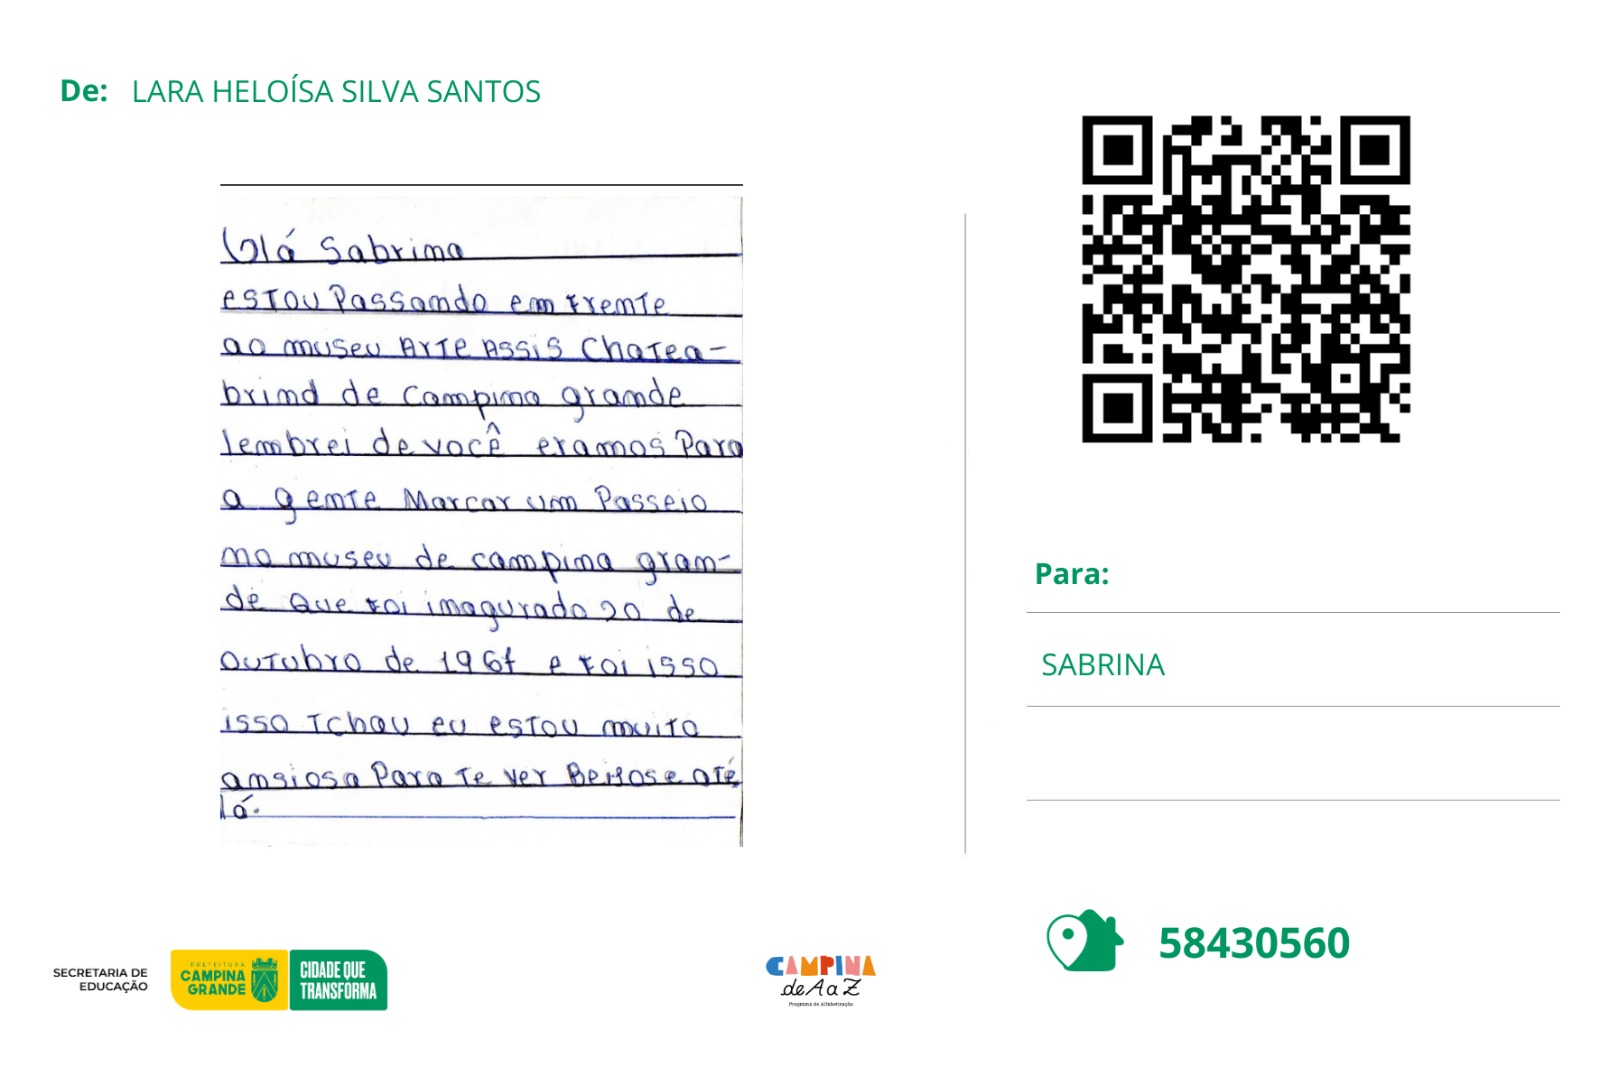 De: LARA HELOÍSA SILVA SANTOS
Olá Sabrina
ESTOU Passando em frente
ao museu ArTe Assis ChaTea-
brind de Campina grande
lembrei de você eramos Para
a gente Marcar um Passeio
no museu de campina gran-
de Que foi inagurado 20 de
ouTubro de 1967 e foi isso
isso Tchau eu esTou muiTo
ansiosa Para Te ver Beijos e aTé
lá.
Para:
SABRINA
58430560
SECRETARIA DE
EDUCAÇÃO
PREFEITURA
CAMPINA
GRANDE
CIDADE QUE
TRANSFORMA
CAMPINA
de A a Z
Programa de Alfabetização